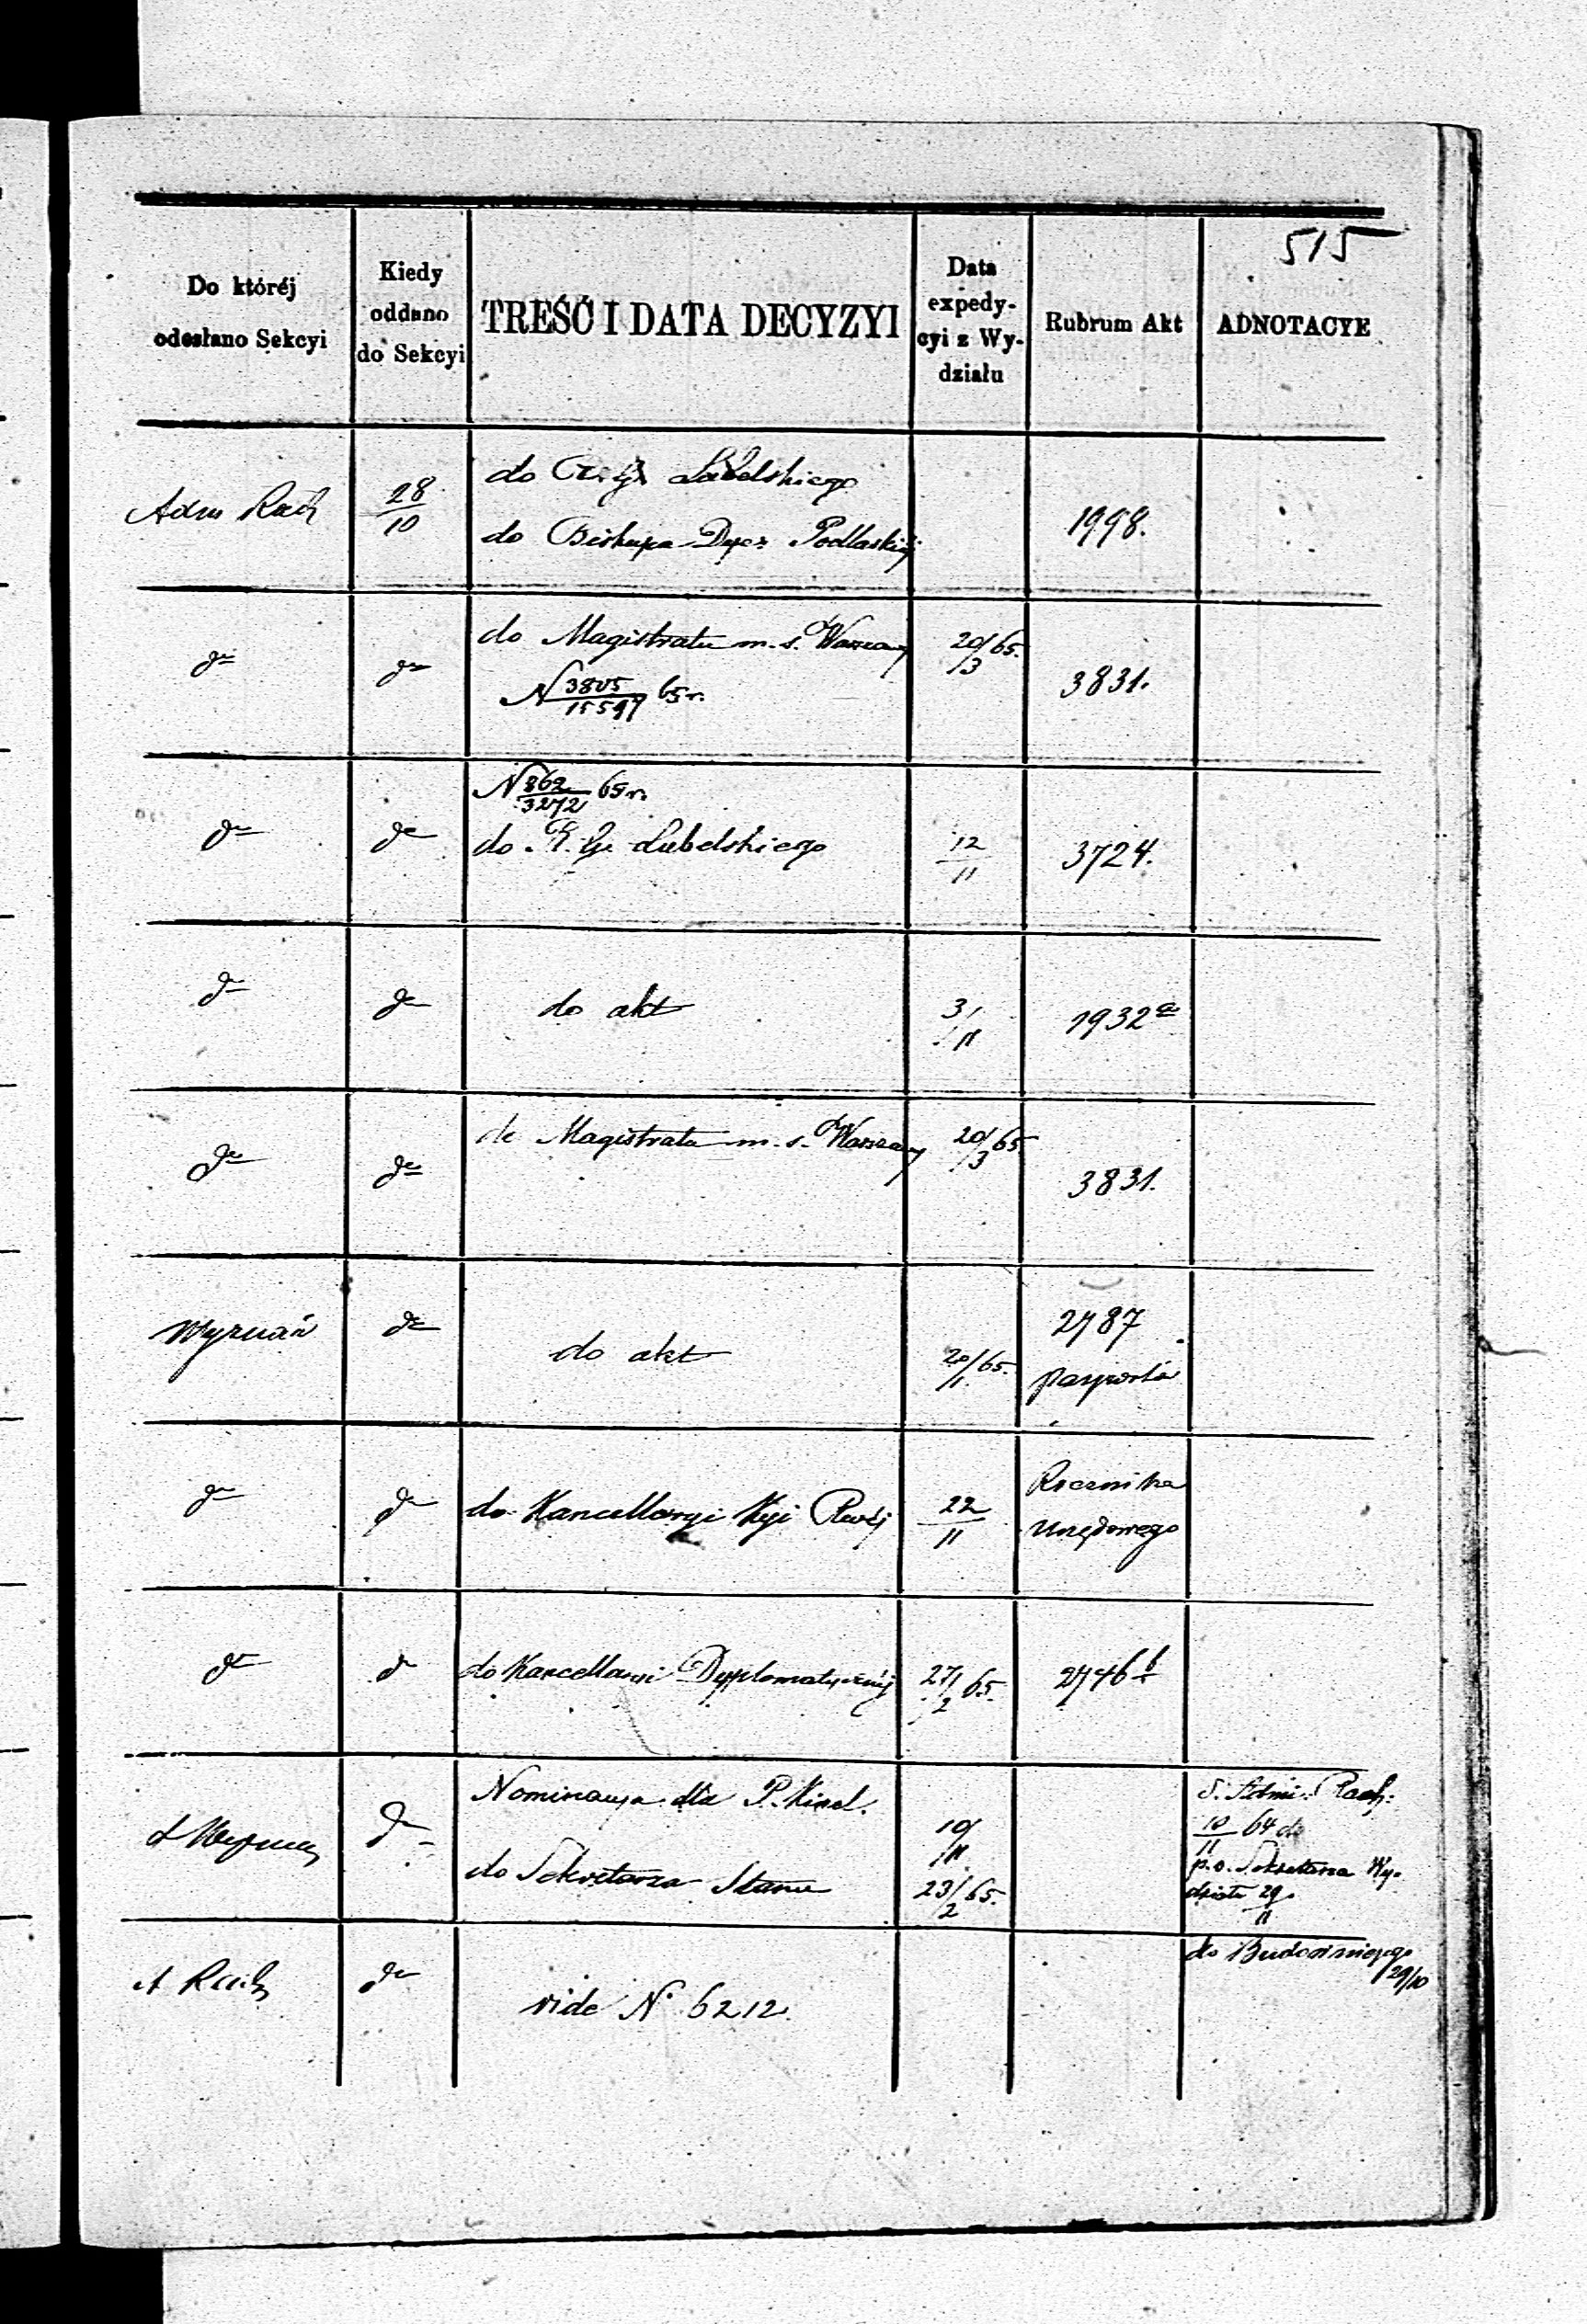 515
Do któréj
odesłano Sekcyi
Kiedy
oddano
do Sekcyi
TREŚĆ I DATA DECYZYI
Data
expedy-
cyi z Wy-
działu
Rubrum Akt
ADNOTACYE
Adm Rach
28/10
do Lubelskiego
do Biskupa Dyec Podlaskiéj
1998.
do
do
do Magistratu m. s. Warszawy
N 3805/15597 65 r.
20/3 65.
3831.
do
do
N 862/3272 65 r.
do Lubelskiego
12/11
3724.
do
do
do akt
3/11
1932 a
do
do
do Magistratu m. s. Warszawy
20/3 65
3831.
Wyznań
do
do akt
20/1 65.
2787
do
do
do Kancellaryi Kyi Rząd
22/11
Rocznika
urzędowego
do
do
do Kancellaryi Dyplomatycznéj
27/2 65.
2746 b
do
Nominacya dla P.
do Sekretarza Stanu
10/11
23/2 65.
S. Admi. Rach:
10/11 64 do
p. o. Sekretarza Wy-
działu 29/11
A Rach
do
vide No 6212.
do Budowniczego
29/10